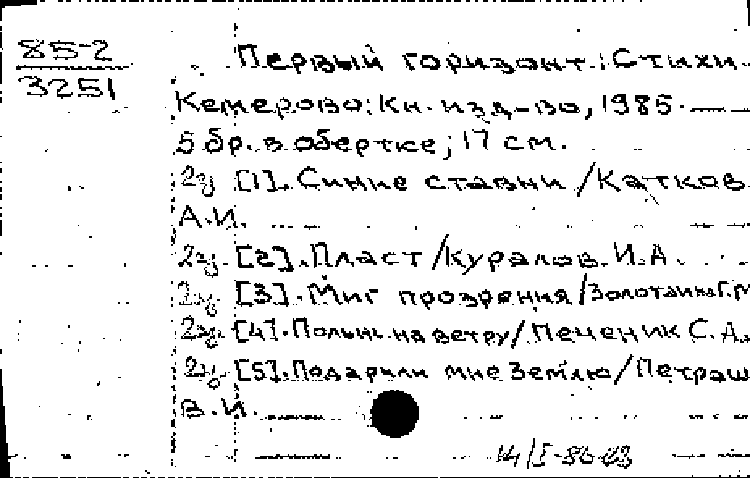 85-2
3251
Первый горизонт: Стихи.
Кемерово: Кн. изд-во, 1985.
5 бр. в обертке; 17 см.
2э [1]. Синие ставни /Катков
А.И.
2э. [2]. Пласт /Куралов И.А.
2э [3]. Миг прозрения /Золотаина Г.М
2э. [4]. Полынь на ветру/ Печеник С.А.
2э. [5]. Подарили мне Землю/Петраш
В.И.